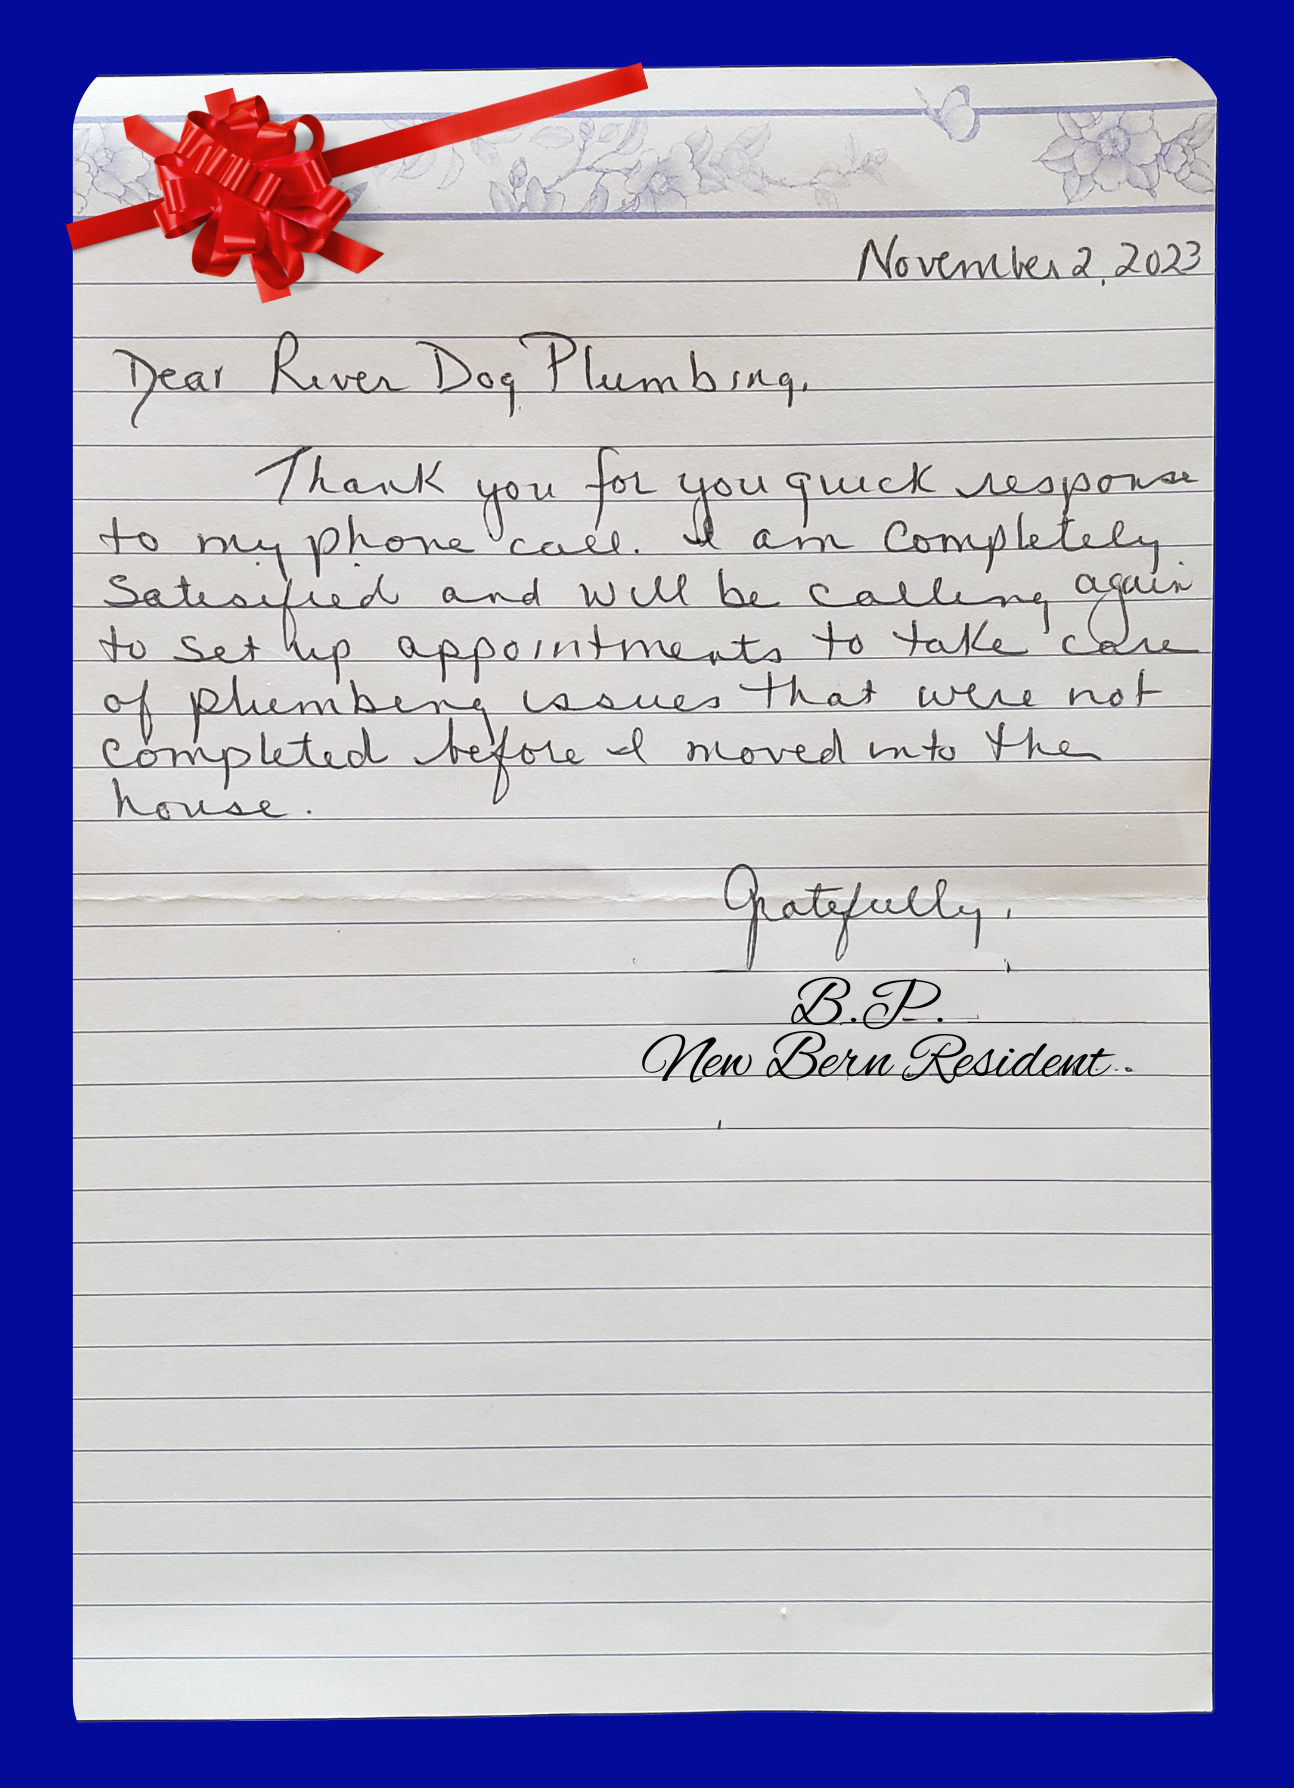 November 2, 2023
Dear River Dog Plumbing,
Thank you for you quick response
to my phone call. I am completely
satesified and will be calling again
to set up appointments to take care
of plumbing issues that were not
completed before I moved into the
house.
Gratefully,
B.P.
New Bern Resident.